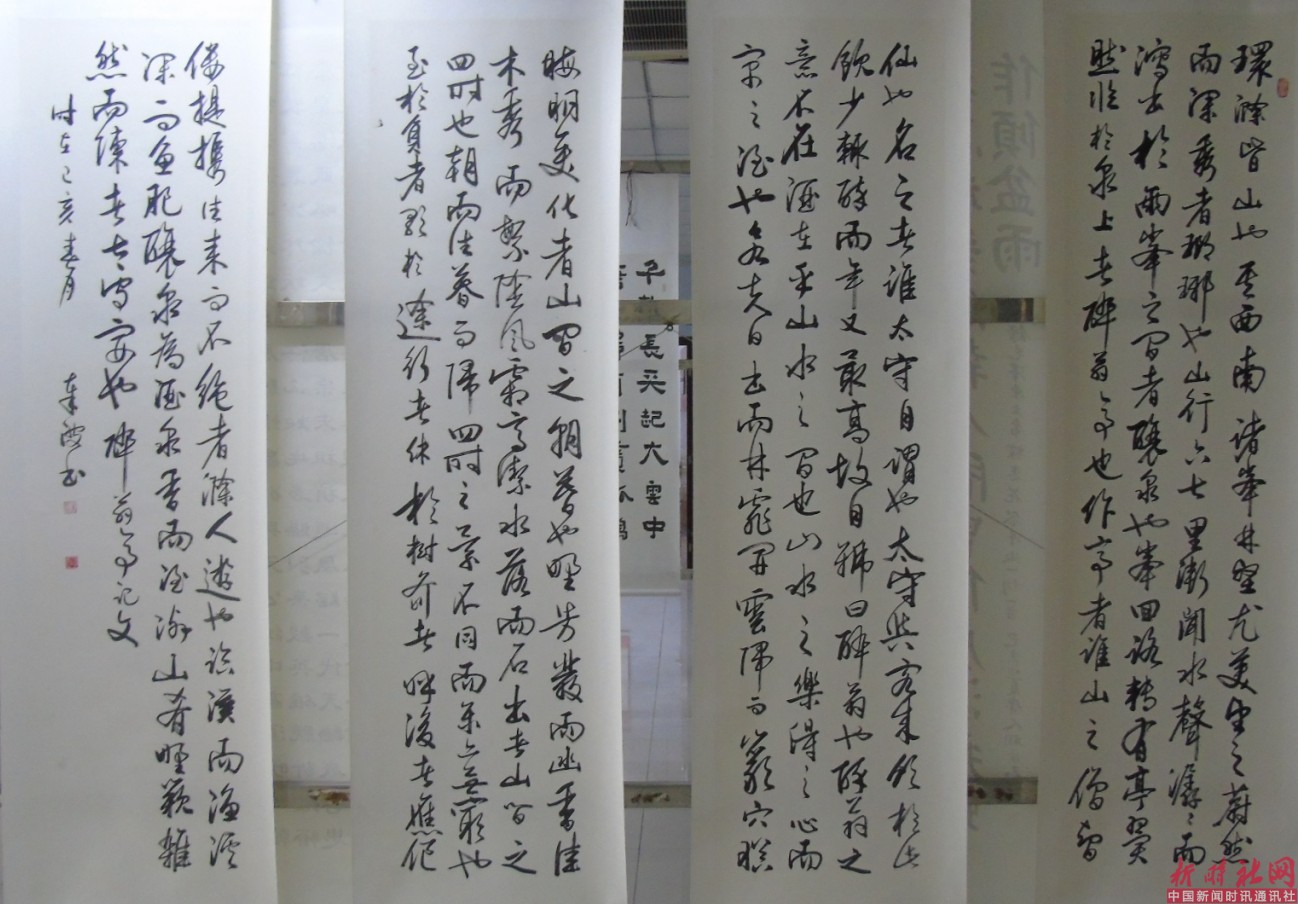 環滁皆山也其西南諸峯林壑尤美望之蔚然
而深秀者瑯琊也山行六七里漸聞水聲潺〻而
瀉出於兩峯之間者釀泉也峯回路轉有亭翼
然臨於泉上者醉翁亭也作亭者誰山之僧智
仙也名之者誰太守自謂也太守與客來飲於此
飲少輒醉而年又最高故自號曰醉翁也醉翁之
意不在酒在乎山水之間也山水之樂得之心而
寓之酒也若夫日出而林霏開雲歸而巖穴暝
晦明变化者山間之朝暮也野芳發而幽香佳
木秀而繁陰風霜高潔水落而石出者山間之
四時也朝而往暮而歸四時之景不同而樂亦無窮也
至於負者歌於途行者休於樹前者呼後者應伛
僂提攜往来而不绝者滁人遊也临溪而漁溪
深而魚肥釀泉為酒泉香而酒洌山肴野蔌雜
然而陳者太守宴也醉翁亭记文
时在己亥春月
作傾盆雨
長天記大雲中
新时社网
中国新闻时讯通讯社